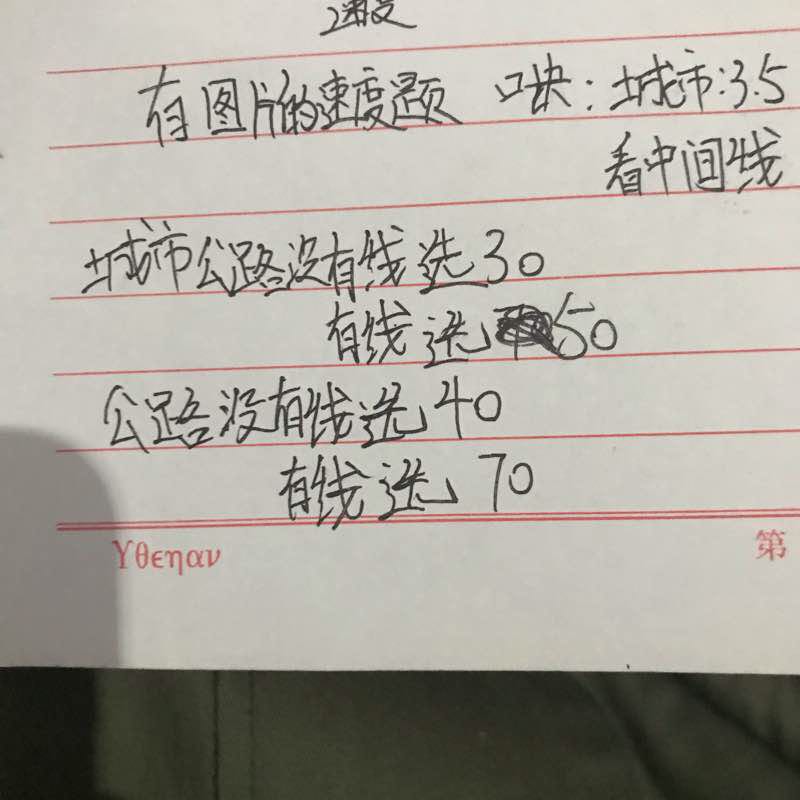 速度
有图片的速度题 口决：城市：3.5
看中间线
城市公路没有线选30
有线选50
公路没有线选40
有线选70
Yθεηαν
第